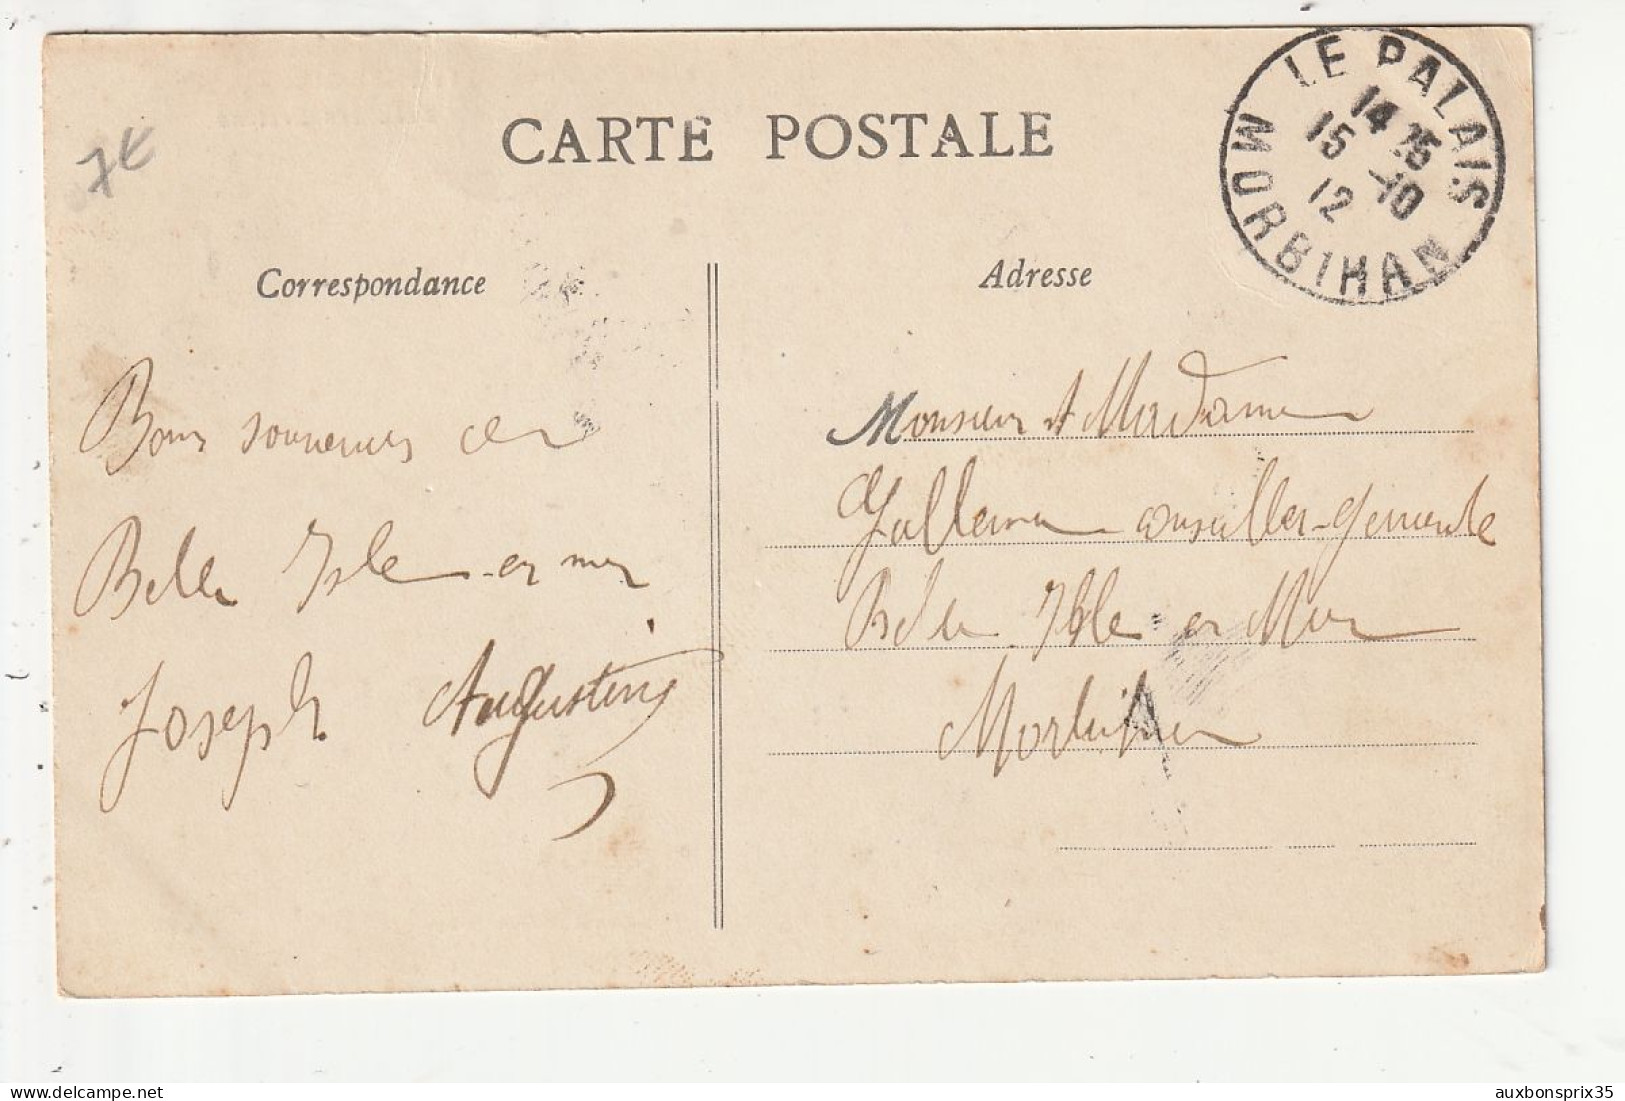 7€
CARTE POSTALE
LE PALAIS
14 25
15 -10
12
MORBIHAN
Correspondance
Adresse
Bons souvenirs de
Belle Isle-en mer
Joseph Augustin
Monsieur et Madame
Gallerne conseiller-général
Belle Isle en Mer
Morbihan
auxbonsprix35